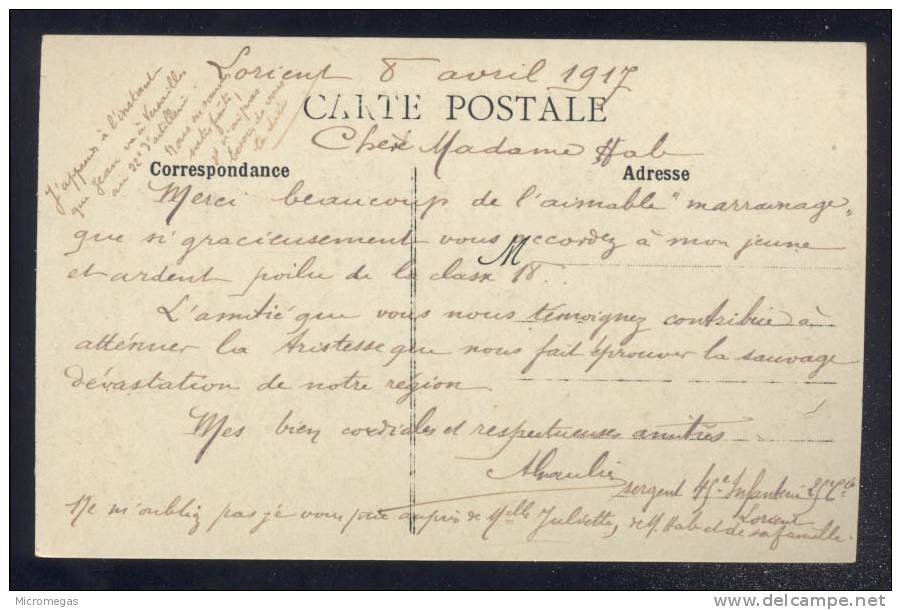 Lorient 8 avril 1917
CARTE POSTALE
Chère Madame Hab
Correspondance
Adresse
Merci beaucoup de l'aimable "marrainage"
que si gracieusement vous accordez à mon jeune
M
et ardent poilu de la classe 18.
L'amitié que vous nous témoignez contribue à
atténuer la tristesse que nous fait éprouver la sauvage
dévastation de notre région
Mes bien cordiales et respectueuses amitiés
sergent 45e Infanterie
Lorient
Ne m'oubliez pas je vous prie auprès de Melle Juliette, de M. Hab et de sa famille.
J'apprends à l'instant
que Jean va à Versailles
au 22e d'artillerie.
Vous en serez
satisfaite,
je n'ai pas
besoin de vous
le dire
Micromegas
www.delcampe.net